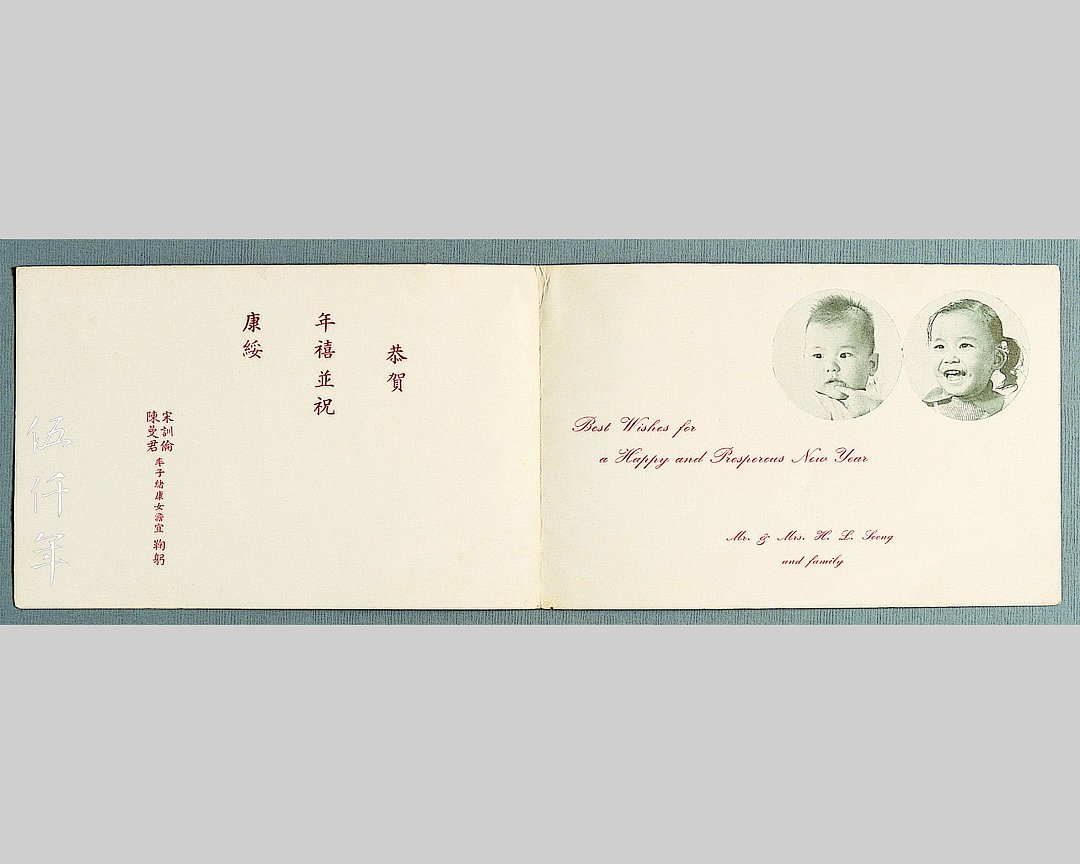 恭賀
年禧並祝
康綏
宋訓倫
陳曼君
率子緒康女宜 鞠躬
伍仟年
Best Wishes for
a Happy and Prosperous New Year
Mr. & Mrs. H. L. Soong
and family